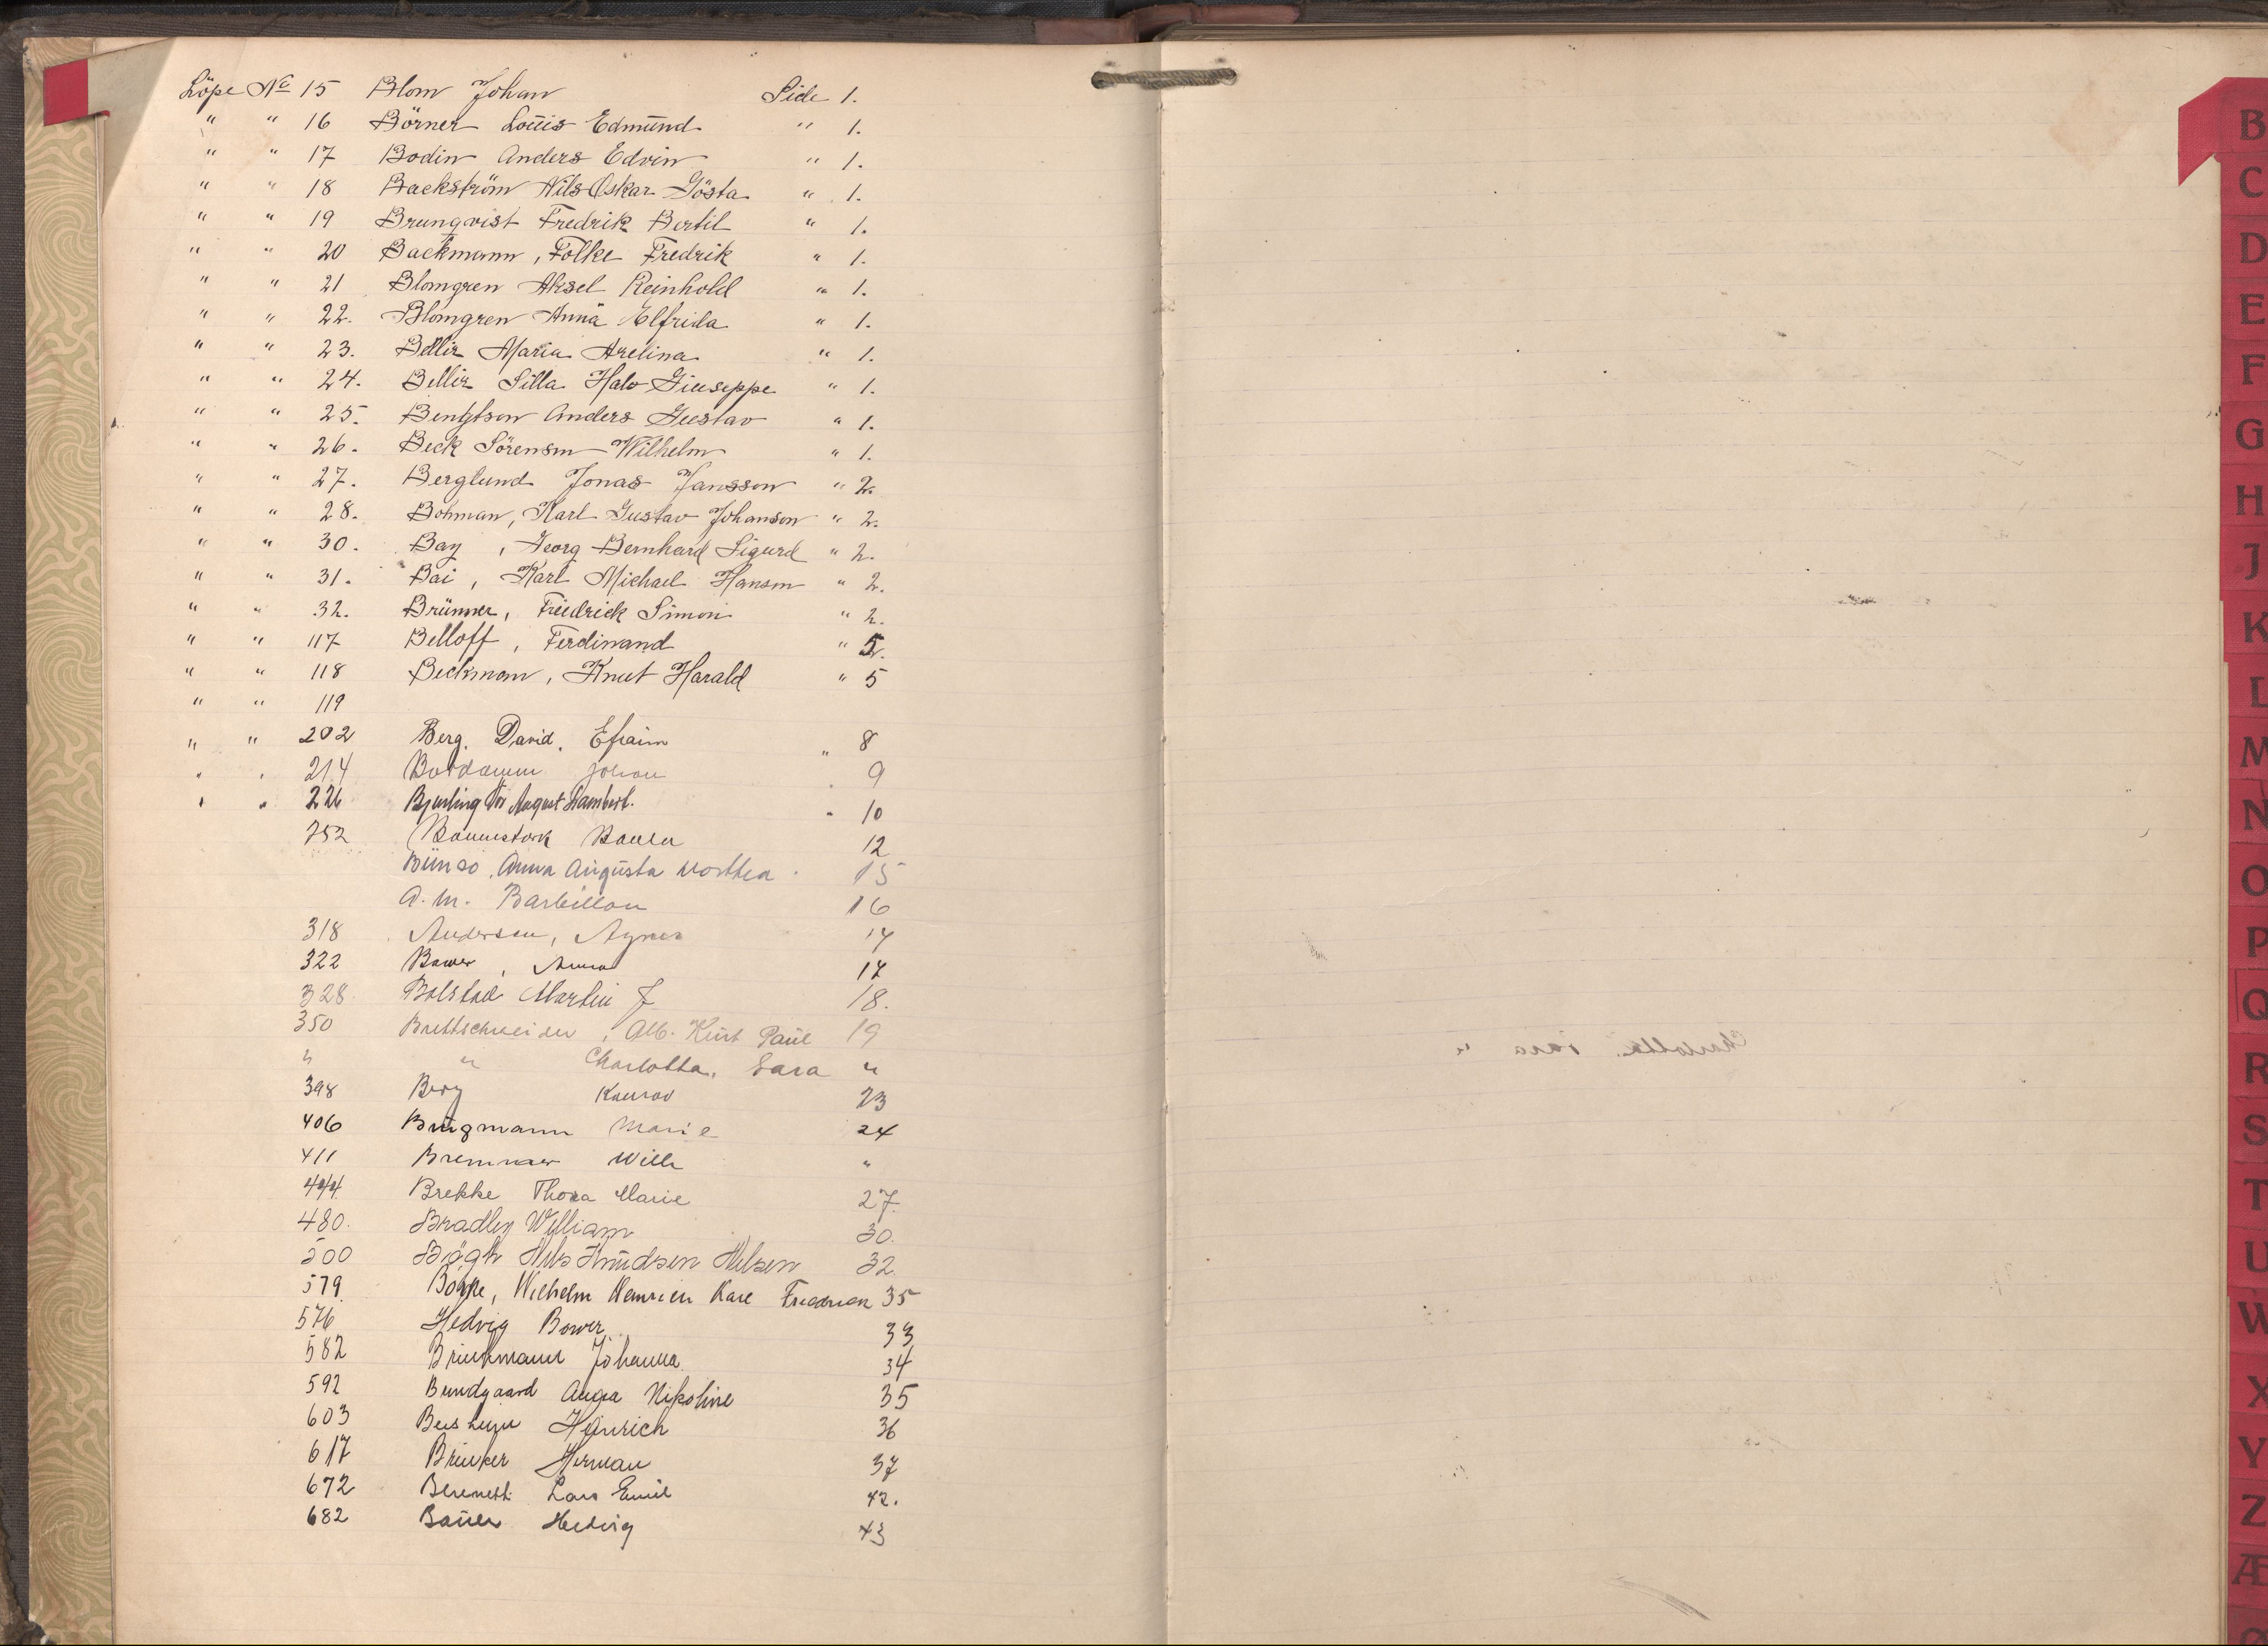 Löpe No 15 Blom Johan Side 1.
" " 16 Börner Louis Edmund " 1.
" " 17 Bodin Anders Edvin " 1.
" " 18 Backström Nils Oskar Gösta " 1.
" " 19 Brunqvist Fredrik Bertil " 1.
" " 20 Backmann, Folke Fredrik " 1.
" " 21 Blomgren Aksel Reinhold " 1.
" " 22. Blomgren Anna Elfrida " 1.
" " 23. Bellir Maria Arelina " 1.
" " 24. Bellir Silla Halo Giuseppe " 1.
" " 25. Bengtson Anders Gustav " 1.
" " 26. Beck Sörensen Wilhelm " 1.
" " 27. Berglund Jonas Jansson " 2.
" " 28. Bohman, Karl Gustav Johanson " 2.
" " 30. Bay, Georg Bernhard Sigurd " 2.
" " 31. Bai, Karl Michael Hansen " 2.
" " 32. Brünner, Friedrick Simon " 2.
" " 117 Belloff, Ferdinand " 5.
" " 118 Beckman, Knut Harald " 5
" " 119
" " 202 Berg. David. Efraim " 8
" " 214 Johan " 9
" " 226 Bjurling August Lambert. " 10
252 12
Bünso, Anna Augusta 15
A. M. Barbillon 16
318 Andersen, Agnes 17
322 Bawer, Anna 17
328 Bolstad Martin J 18.
350 Brettschneider, Alb. Kurt Paul 19
" " Charlotta, Sara "
398 Berg Konrad 23
406 Brügmann Marie 24
411 Bremmer Willi "
444 Brekke Thora Marie 27.
480. Bradley William 30.
500 Bögh Nils Knudsen Nilsen 32.
579 Wilhelm Heinrich Karl Friedrich 35
576 Hedvig Bower 33
582 Brinkmann Johanna 34
592 Bundgaard Anna Nikoline 35
603 Heinrich 36
617 Brinker Herman 37
672 Lars Emil 42.
682 Bauer Hedvig 43
B
C
D
E
F
G
H
J
K
L
M
N
O
P
Q
R
S
T
U
W
X
Y
Z
Æ